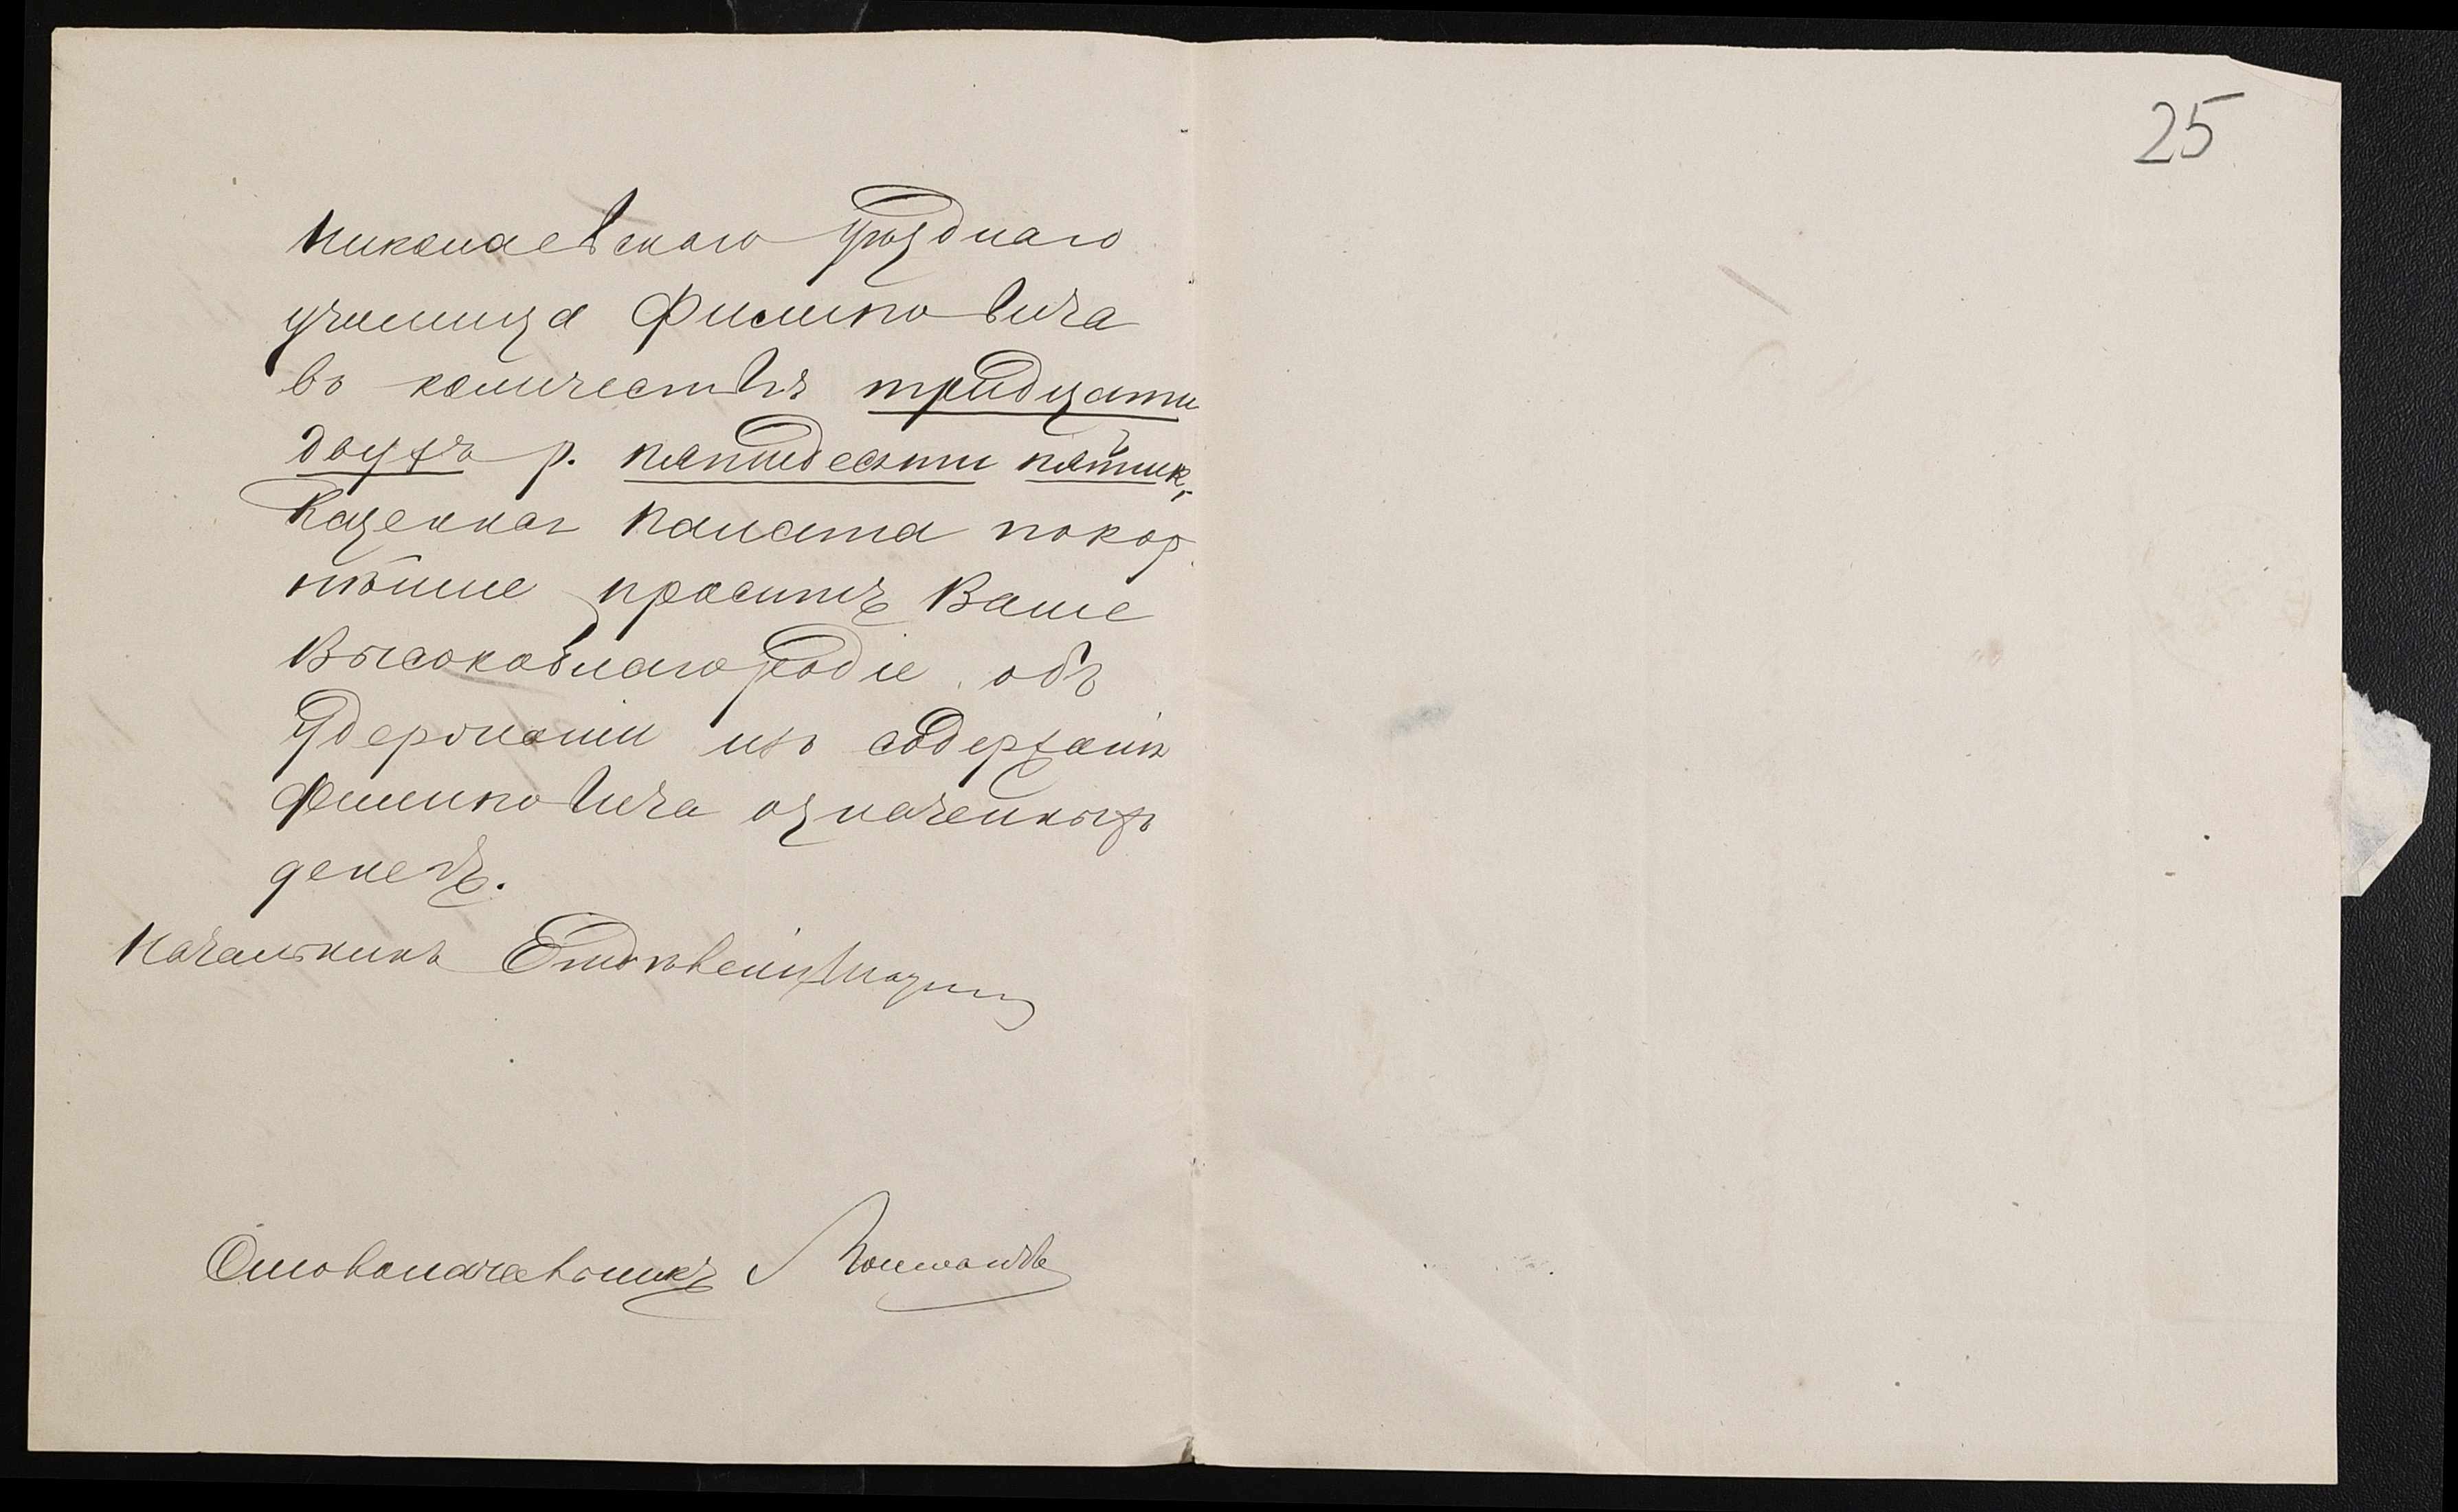 25
Николаевскаго Уѣзднаго
училища Филипповича
въ количествѣ тридцати
двухъ р. пятидесяти пяти к.,
Казенная Палата покор
нѣйше проситъ Ваше
Высокоблагородіе объ
Удержаніи изъ содержанія
Филипповича означенныхъ
денегъ.
Начальникъ
Столоначальникъ